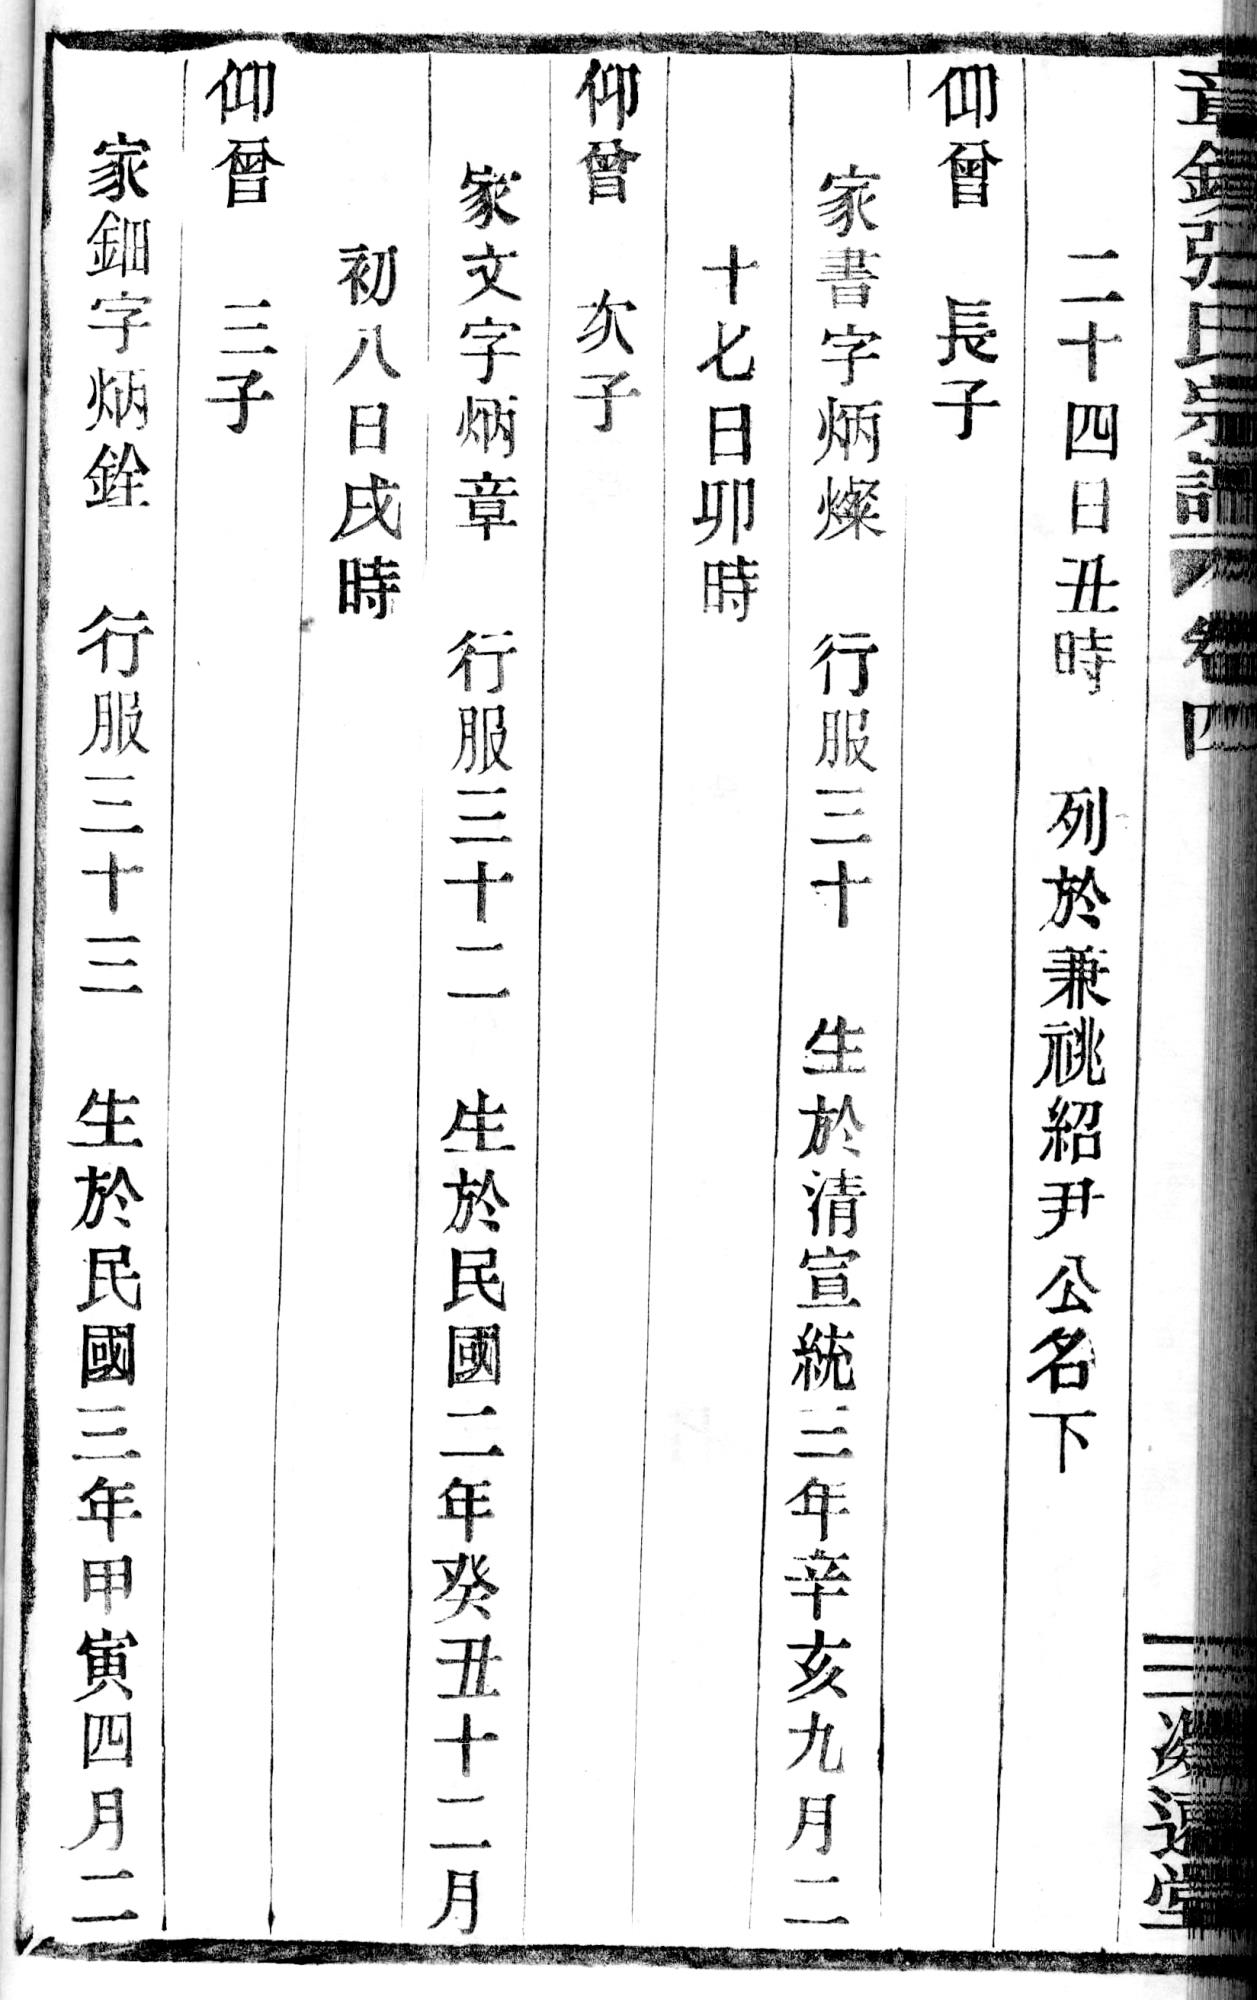 張氏宗譜 卷四
二十四日丑時 列於兼祧紹尹公名下
仰曾 長子
家書字炳燦 行服三十 生於清宣統三年辛亥九月二
十七日卯時
仰曾 次子
家文字炳章 行服三十二 生於民國二年癸丑十二月
初八日戌時
仰曾 三子
家鈿字炳銓 行服三十三 生於民國三年甲寅四月二